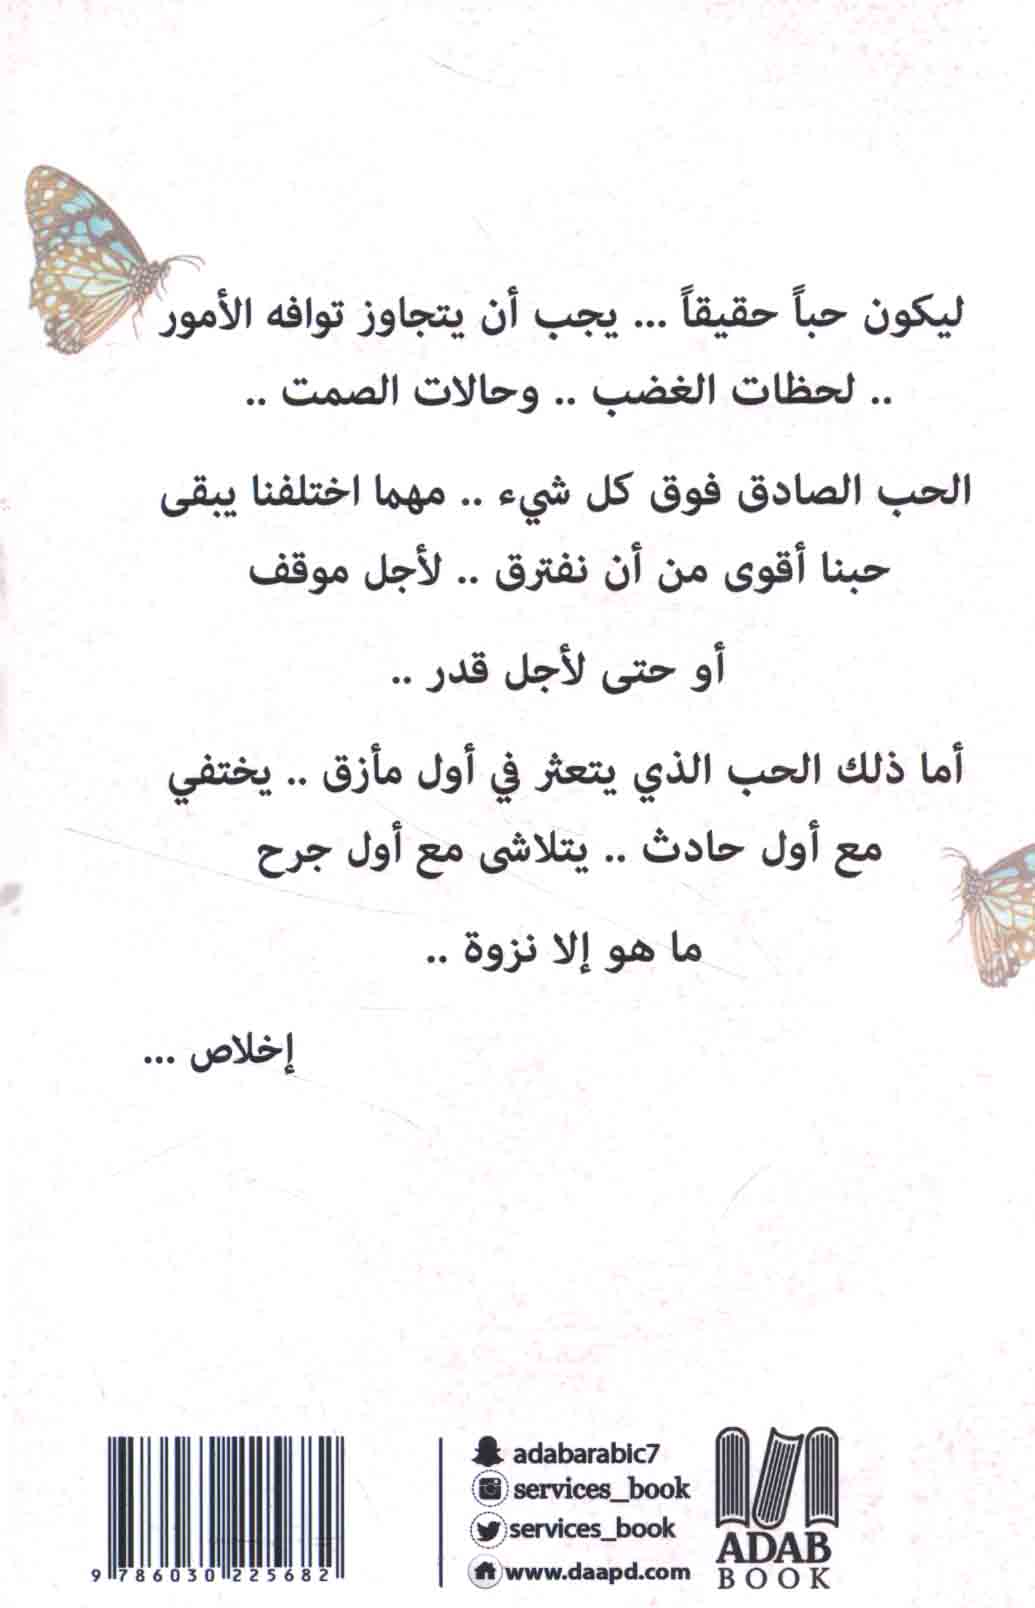 ليكون حباً حقيقاً ... يجب أن يتجاوز توافه الأمور
.. لحظات الغضب .. وحالات الصمت ..
الحب الصادق فوق كل شيء .. مهما اختلفنا يبقى
حبنا أقوى من أن نفترق .. لأجل موقف
أو حتى لأجل قدر ..
أما ذلك الحب الذي يتعثر في أول مأزق .. يختفي
مع أول حادث .. يتلاشى مع أول جرح
ما هو إلا نزوة ..
إخلاص ...
adabarabic7
services_book
services_book
www.daapd.com
ADAB
BOOK
9 786030 225682